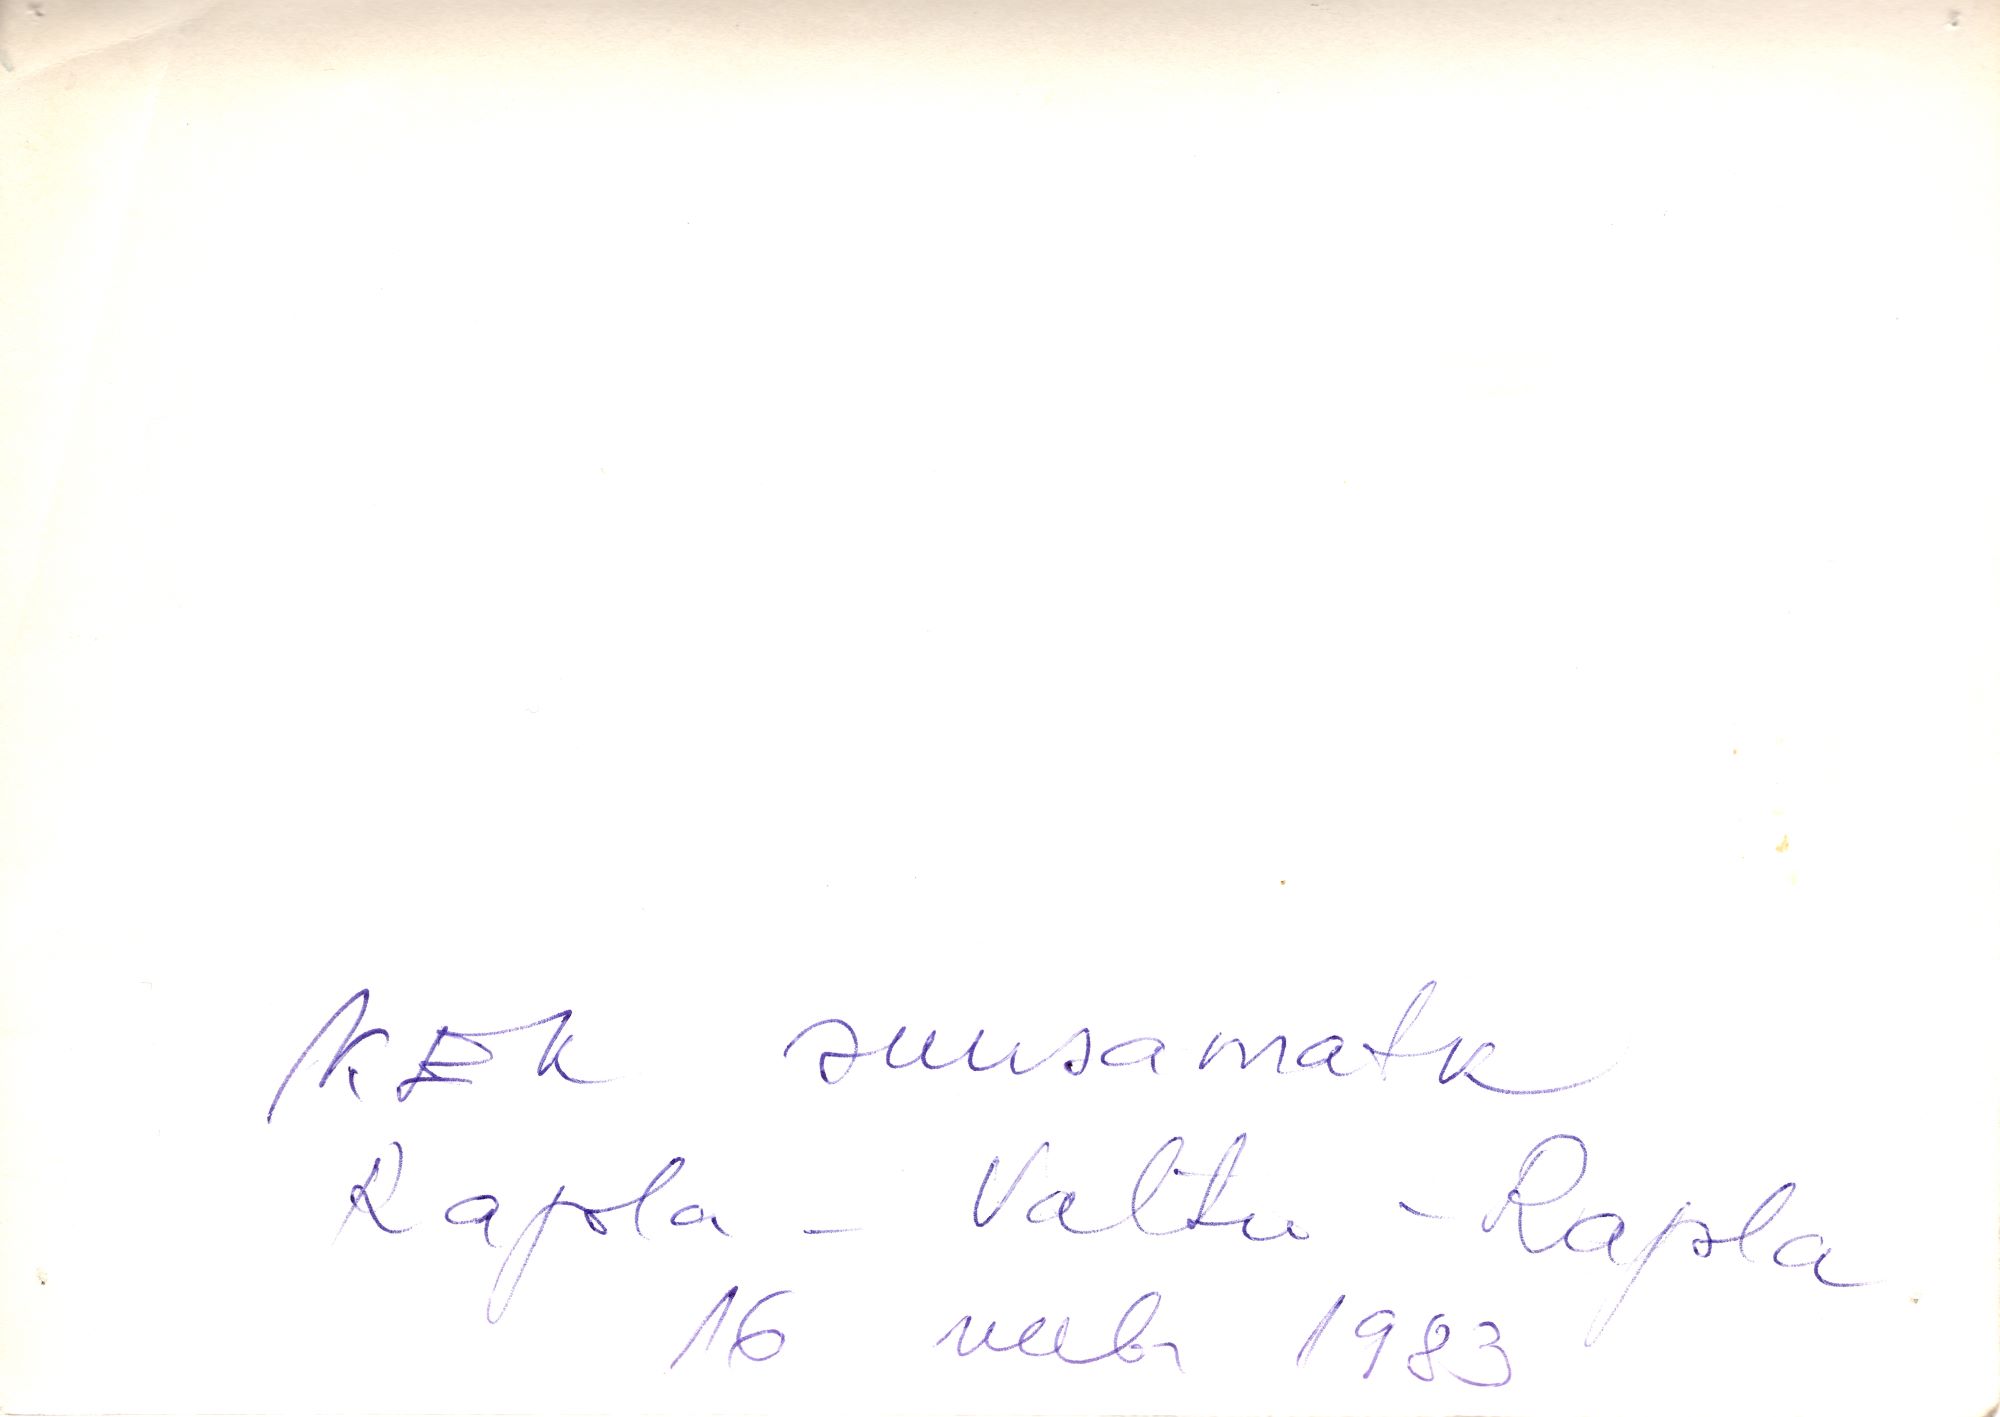 KEK suusamatk
Rapla - Valtu - Rapla
16 veebr 1983